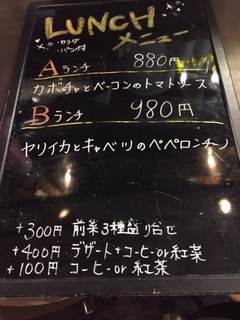 LUNCH
・サラダ
・パン付
メニュー
Aランチ 880円
カボチャとベーコンのトマトソース
Bランチ 980円
ヤリイカとキャベツのペペロンチーノ
+300円 前菜3種盛り合せ
+400円 デザート+コーヒーor紅茶
+100円 コーヒーor紅茶